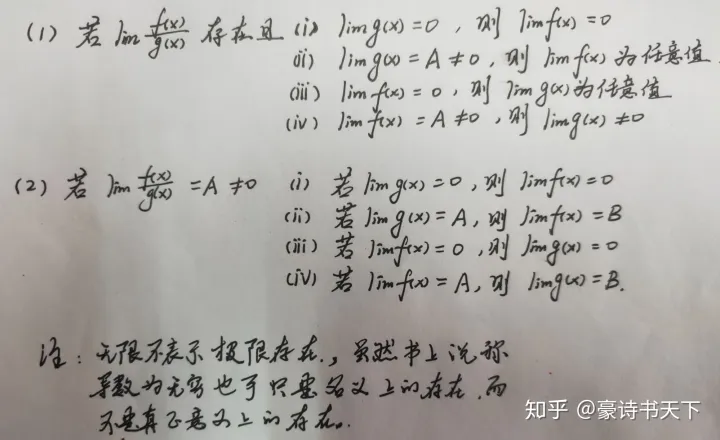 (1) 若 lim f(x)/g(x) 存在且 (i) lim g(x) = 0 , 则 lim f(x) = 0
(ii) lim g(x) = A ≠ 0 , 则 lim f(x) 为任意值
(iii) lim f(x) = 0 , 则 lim g(x) 为任意值
(iv) lim f(x) = A ≠ 0 , 则 lim g(x) ≠ 0
(2) 若 lim f(x)/g(x) = A ≠ 0 (i) 若 lim g(x) = 0 , 则 lim f(x) = 0
(ii) 若 lim g(x) = A , 则 lim f(x) = B
(iii) 若 lim f(x) = 0 , 则 lim g(x) = 0
(iv) 若 lim f(x) = A , 则 lim g(x) = B.
注: 无限不表示极限存在., 虽然书上说称
导数为无穷也可 只是名义上的存在, 而
不是真正意义上的存在。
知乎 @豪诗书天下